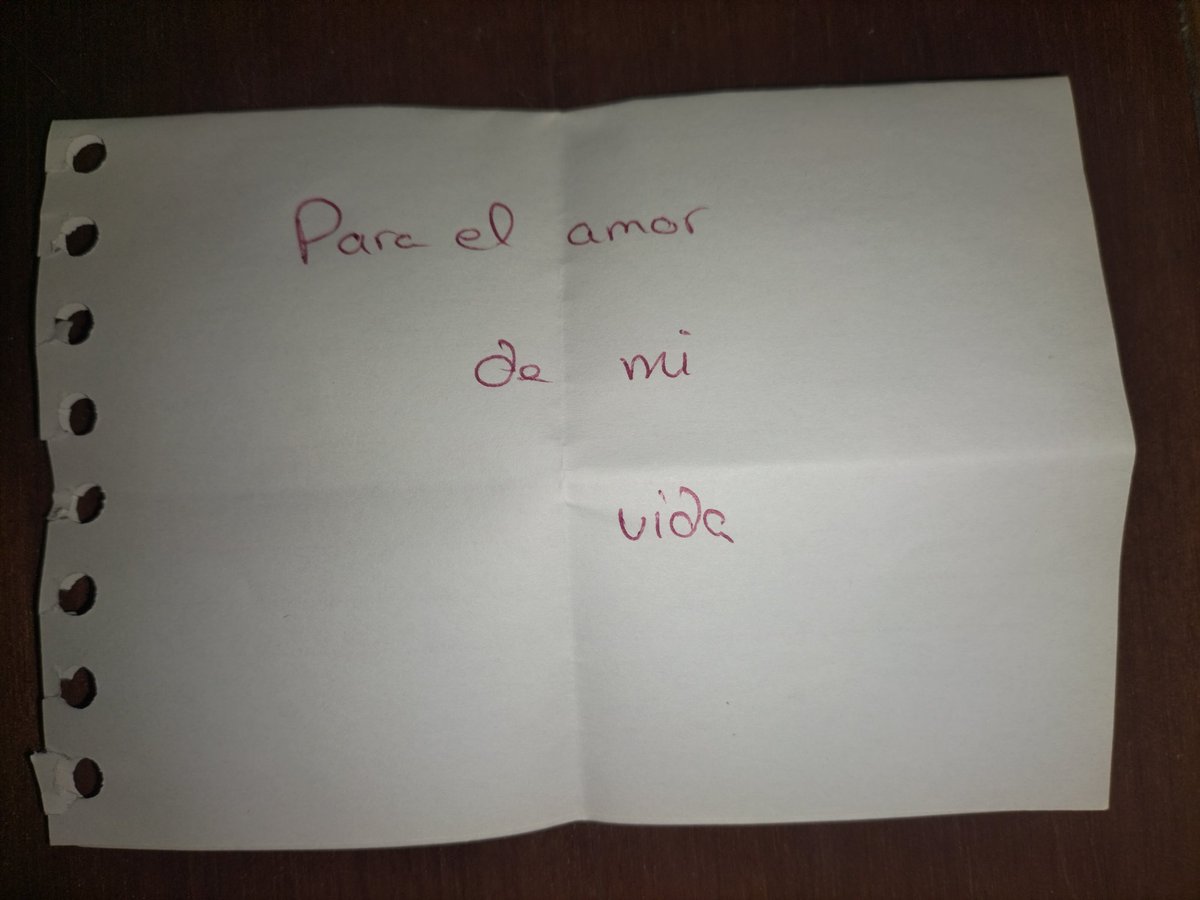 Para el amor
de mi
vida